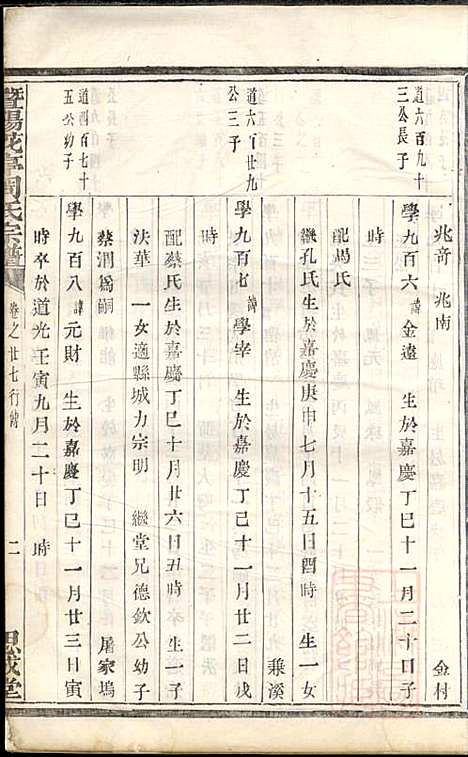 兆奇　兆南　金村
道六百九十三公長子
學九百六諱金遠　生於嘉慶丁巳十一月二十日子
時
配馮氏
繼孔氏生於嘉慶庚申七月十五日酉時　生一女
乗溪
道六百廿九公三子
學九百七諱學宰　生於嘉慶丁巳十一月廿二日戌
時
配蔡氏生於嘉慶丁巳十月廿六日丑時　生一子
汰華　一女適縣城力宗明　繼堂兄德欽公幼子
蔡潤為嗣　屠家塢
道四百七十五公幼子
學九百八諱元財　生於嘉慶丁巳十一月廿三日寅
時卒於道光壬寅九月二十日　時
暨陽花亭周氏宗譜　卷之廿七行傳　二　思成堂